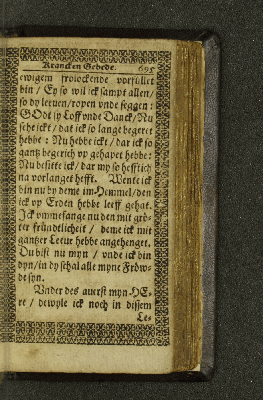 Krancken Gebede. 695
ewigem frolockende vorfüllet
bin / Ey so wil ick sampt allen /
so dy leeuen / ropen vnde seggen :
GOdt sy Loff vnde Danck / Nu
sehe ickt / dat ick so lange begeret
hebbe : Nu hebbe ickt / dar ick so
gantz begerich vp gehapet hebbe:
Nu besitte ick / dar my so hefftich
na vorlanget hefft. Wente ick
bin nu by deme im Hemmel / den
ick vp Erden hebbe leeff gehat.
Ick vmmefange nu den mit grö-
ter fründtlicheit / deme ick mit
gantzer Leeue hebbe angehenget.
Du bist nu myn / vnde ick bin
dyn / in dy schal alle myne Fröw-
de syn.
Vnder des auerst myn HE-
re / dewyle ick noch in dissem
Le-